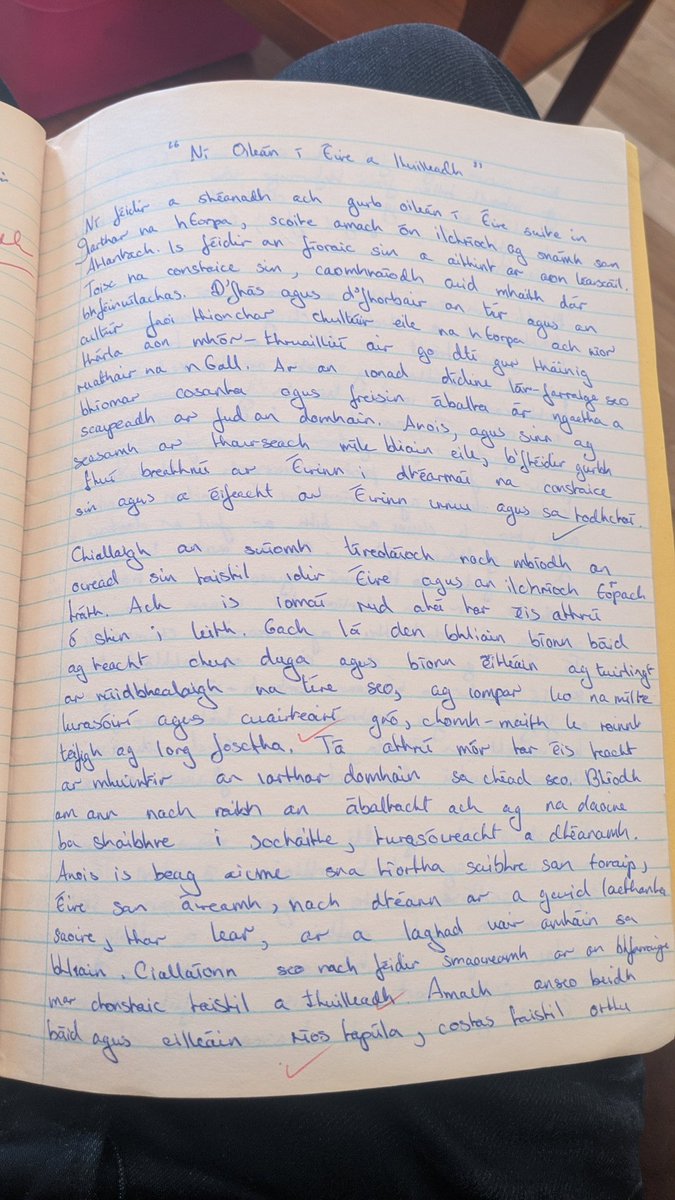 "Ní Oileán í Éire a thuilleadh"
Ní féidir a shéanadh ach gurb oileán í Éire suite in
Iarthar na hEorpa, scoite amach ón ilchríoch ag snámh san
Atlantach. Is féidir an fíoraic sin a aithint ar aon léarscáil.
Toisc na constaice sin, caomhnaíodh cuid mhaith dár
bhféiniúlachas. D'fhás agus d'fhorbair an tír agus an
cultúr faoi thionchar chultúir eile na hEorpa ach níor
thárla aon mhór-thruailliú air go dtí gur tháinig
ruathair na nGall. Ar an ionad dídine lár-farraige seo
bhíomar cosanta agus freisin ábalta ár ngaetha a
scaipeadh ar fud an domhain. Anois, agus sinn ag
seasamh ar thairseach míle bliain eile, b'fhéidir gurbh
fhiú breathnú ar Éirinn i dtéarmaí na constaice
sin agus a éifeacht ar Éirinn inniu agus sa todhchaí.
Chiallaigh an suíomh tíreolaíoch nach mbíodh an
oiread sin taistil idir Éire agus an ilchríoch Eorpach
tráth. Ach is iomaí rud atá tar éis athrú
ó shin i leith. Gach lá den bhliain bíonn báid
ag teacht chun duga agus bíonn eitleáin ag tuirlingt
ar rúidbhealaigh na tíre seo, ag iompar leo na mílte
turasóirí agus cuairteoirí gnó, chomh-maith le roinnt
teifigh ag lorg fosctha. Tá athrú mór tar éis teacht
ar mhuintir an iarthar domhain sa chéad seo. Bhíodh
am ann nach raibh an ábaltacht ach ag na daoine
ba shaibhre i sochaithe, turasóireacht a dhéanamh.
Anois is beag aicme sna tíortha saibhre san Eoraip,
Éire san áireamh, nach dtéann ar a gcuid laethanta
saoire, thar lear, ar a laghad uair amháin sa
bhliain. Ciallaíonn seo nach féidir smaoineamh ar an bhfarraige
mar chonstaic taistil a thuilleadh. Amach anseo beidh
báid agus eitleáin níos tapúla, costas taistil orthu